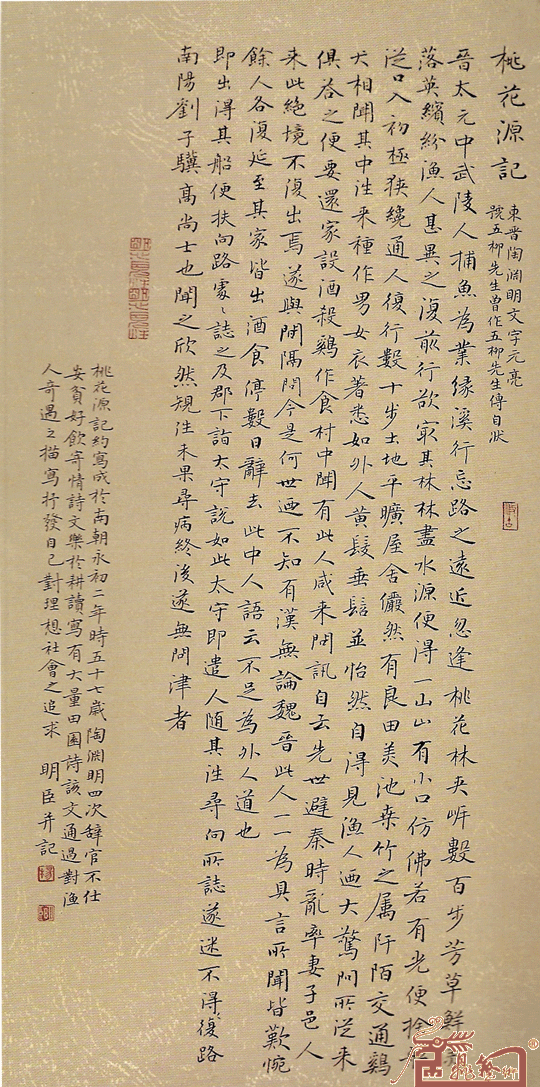 桃花源記
東晉陶淵明文字元亮
號五柳先生曾作五柳先生傳自狀
晉太元中武陵人捕魚為業缘溪行忘路之遠近忽逢桃花林夾岈數百步芳草鮮
落英繽紛漁人甚異之復前行欲窮其林林盡水源便得一山山有小口仿佛若有光便捨
從口入初極狹纔通人復行數十步土地平曠屋舍儼然有良田美池桑竹之属阡陌交通鷄
犬相聞其中往来種作男女衣著悉如外人黄髮垂髫並怡然自得見漁人迺大驚問所從来
俱答之便要還家設酒殺鷄作食村中聞有此人咸来問訊自云先世避秦時亂率妻子邑人
来此絶境不復出焉遂與間隔問今是何世迺不知有漢無論魏晉此人一一為具言所聞皆歎惋
餘人各復延至其家皆出酒食停數日辭去此中人語云不足為外人道也
即出得其船便扶向路處〻誌之及郡下詣太守說如此太守即遣人随其往尋向所誌遂迷不得復路
南陽劉子驥高尚士也聞之欣然規往未果尋病終後遂無問津者
桃花源記約寫成於南朝永初二年時五十七歲陶淵明四次辭官不仕
安貧好飲寄情詩文樂於耕讀寫有大量田園詩該文通過對漁
人奇遇之描寫抒發自己對理想社會之追求 明臣并記